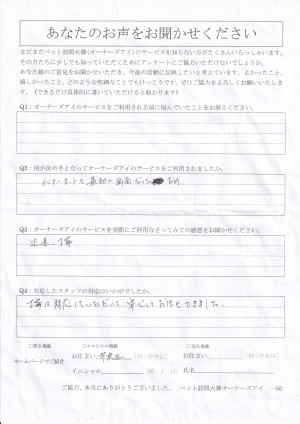 あなたのお声をお聞かせください
まだまだペット訪問火葬(オーナーズアイ)のサービスを知らない方がたくさんいらっしゃいます。
その方たちに少しでも知っていただくためにアンケートにご協力いただけないでしょうか。
あなた様のご意見をお聞かせいただき、今後の活動に反映したいと考えています。よかったこと、
嬉しかったこと、どのような些細なことでもけっこうです。ぜひご協力をよろしくお願いいたしま
す。(できるだけ具体的に書いていただけると助かります)
Q1:オーナーズアイのサービスをご利用される前に悩んでいたことをお教えください。
Q2:何が決め手となってオーナーズアイのサービスをご利用されましたか。
インターネットで最初の画面だった ため
Q3:オーナーズアイのサービスを実際にご利用なさってみての感想をお聞かせください。
迅速、丁寧
Q4:対応したスタッフの対応はいかがでしたか。
丁寧に対応していただいて 安心してお任せできました。
□匿名掲載 □イニシャル掲載 □実名掲載
ホームページでご紹介
お住まい (例:中央区) お住まい (例:中央区)
イニシャル (例:T.H) 氏名
ご協力、本当にありがとうございました。 ペット訪問火葬オーナーズアイ 一同